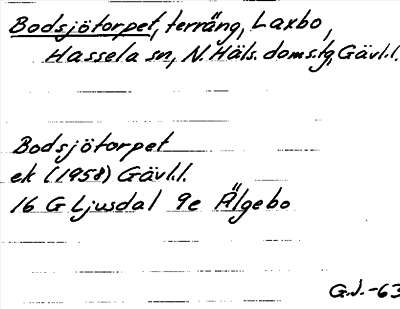 Bodsjötorpet, terräng, Laxbo,
Hassela sn, N. Häls. doms.tg, Gävl.l.
Bodsjötorpet
ek (1958) Gävl.l.
16 G Ljusdal 9e Älgebo
G.J.-63